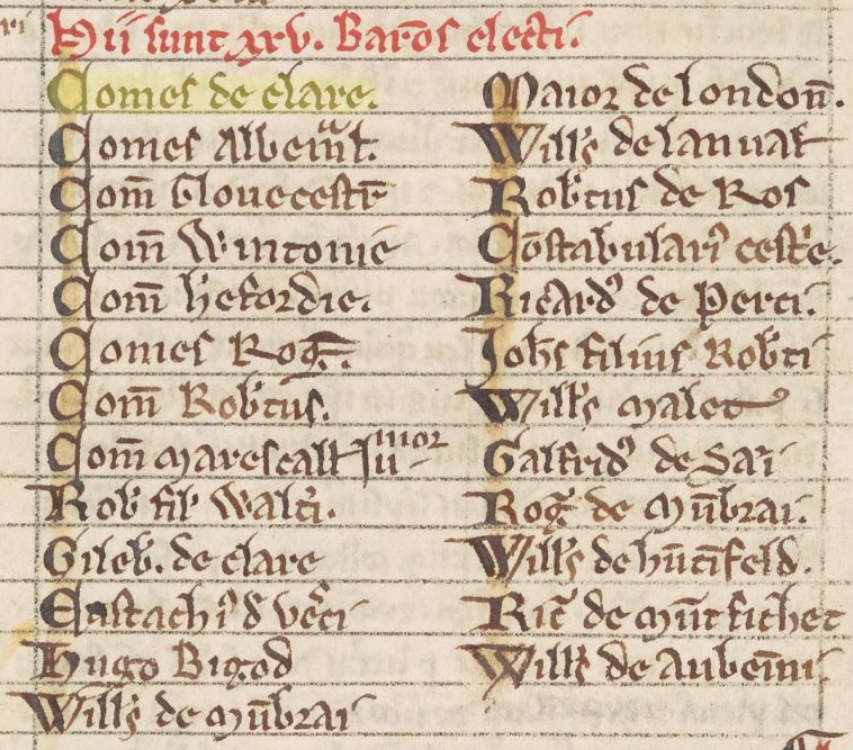 Hii sunt xxv. Baro͂s electi.
Comes de clare.
Comes Albem̃l.
Com̃ Gloucestr̃
Com̃ Wintonie
Com̃ hefordie.
Comes Rog̃.
Com̃ Rob̃tus.
Com̃ marescall iunior
Rob̃ fil̃ Walt̃i.
Gileb̃. de clare
Eustachi⁹ d̃ vẽci
Hugo Bigod
Will̃s de mũbrai
Maior de londoñ.
Will̃s de lanual̃
Rob̃tus de Ros
Cõstabulari⁹ cest̃e.
Ricard⁹ de Perci.
Joh̃s filius Rob̃ti
Will̃s malet
Galfrid⁹ de Sai
Rog̃ de mũbrai.
Will̃s de hũtĩfeld.
Ric̃ de mũtfichet
Will̃s de aubeĩni